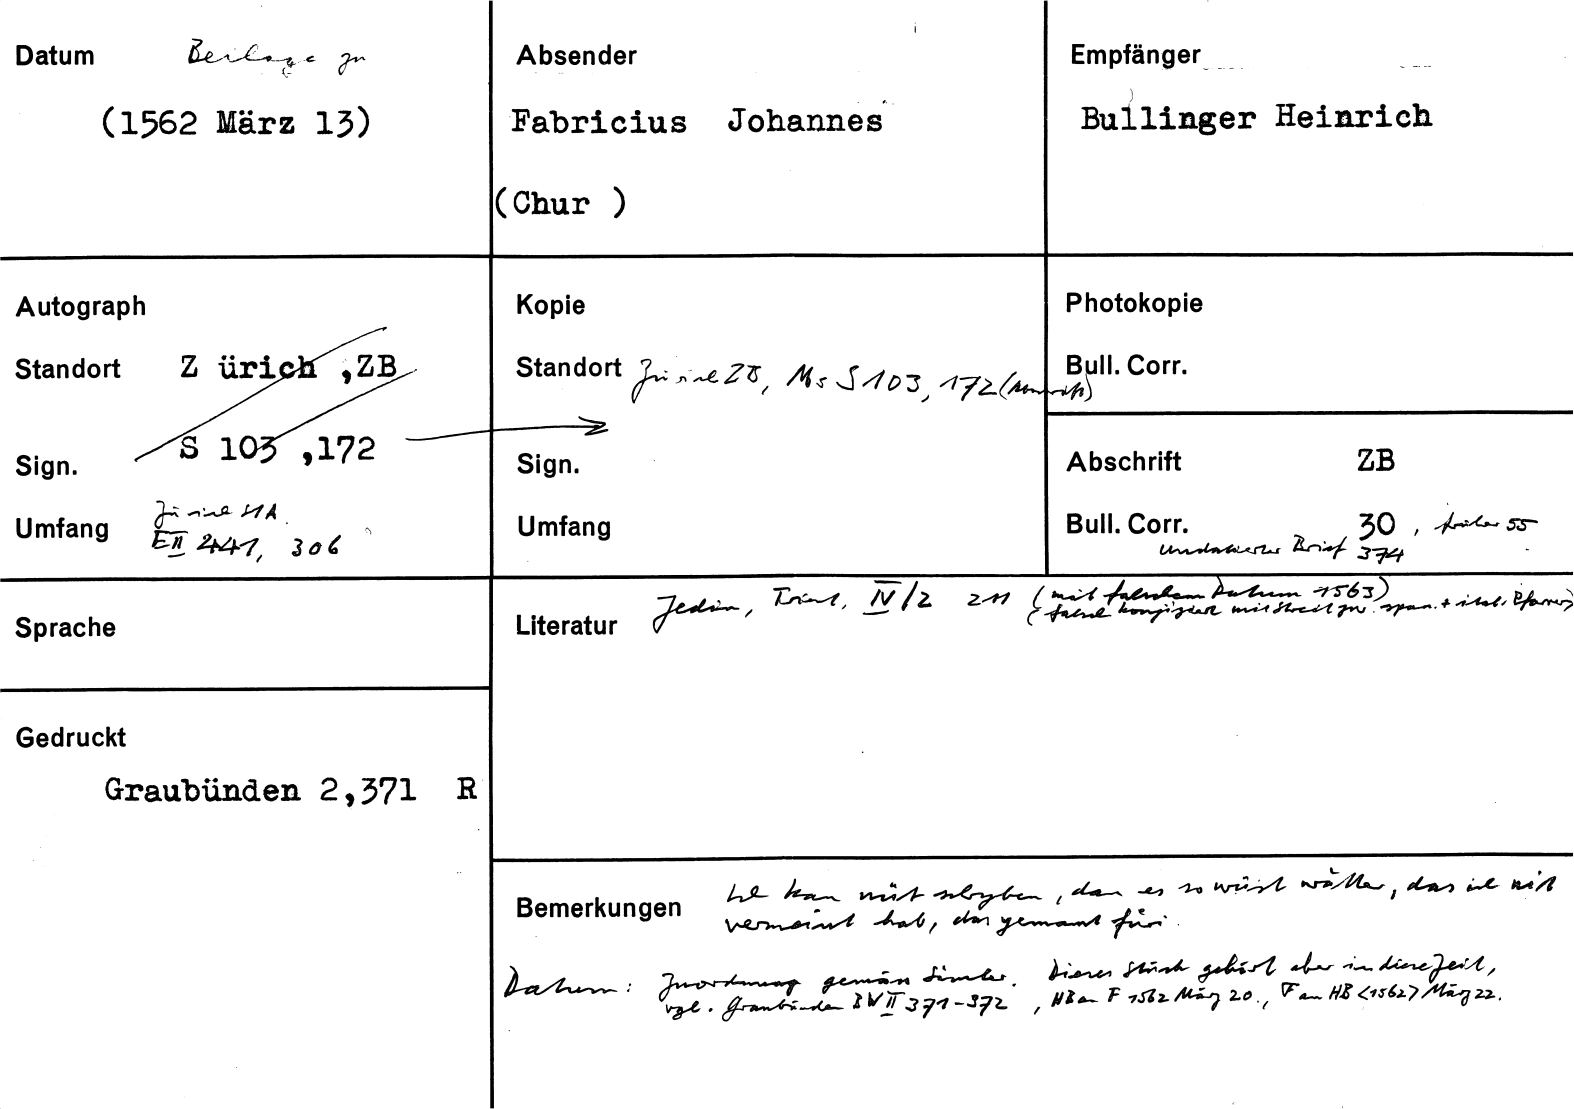 Datum Beilage zu
(1562 März 13)
Absender
Fabricius Johannes
(Chur )
Empfänger
Bullinger Heinrich
Autograph
Standort Z ürich ,ZB
Sign. S 103 ,172
Umfang Zürich StA
EII 441, 306
Kopie
Standort Zürich ZB, Ms S 103, 172
Sign.
Umfang
Photokopie
Bull. Corr.
Abschrift ZB
Bull. Corr. 30 , früher 55
undatierter Brief 374
Sprache
Gedruckt
Graubünden 2,371 R
Literatur Jedin, Trient, IV/2 211 (mit falschem Datum 1563)
(falsch konjiziert mit Streit zw. span. + ital. Pfarrer)
Bemerkungen Ich kan nüt schryben, dan es so wüst wätter, das ich nit
vermeint hab, das jemant für.
Datum: Zuordnung gemäss Simler. Dieses Stück gehört aber in diese Zeit,
vgl. Graubünden BW II 371-372 , HB an F 1562 März 20., F an HB <1562> März 22.